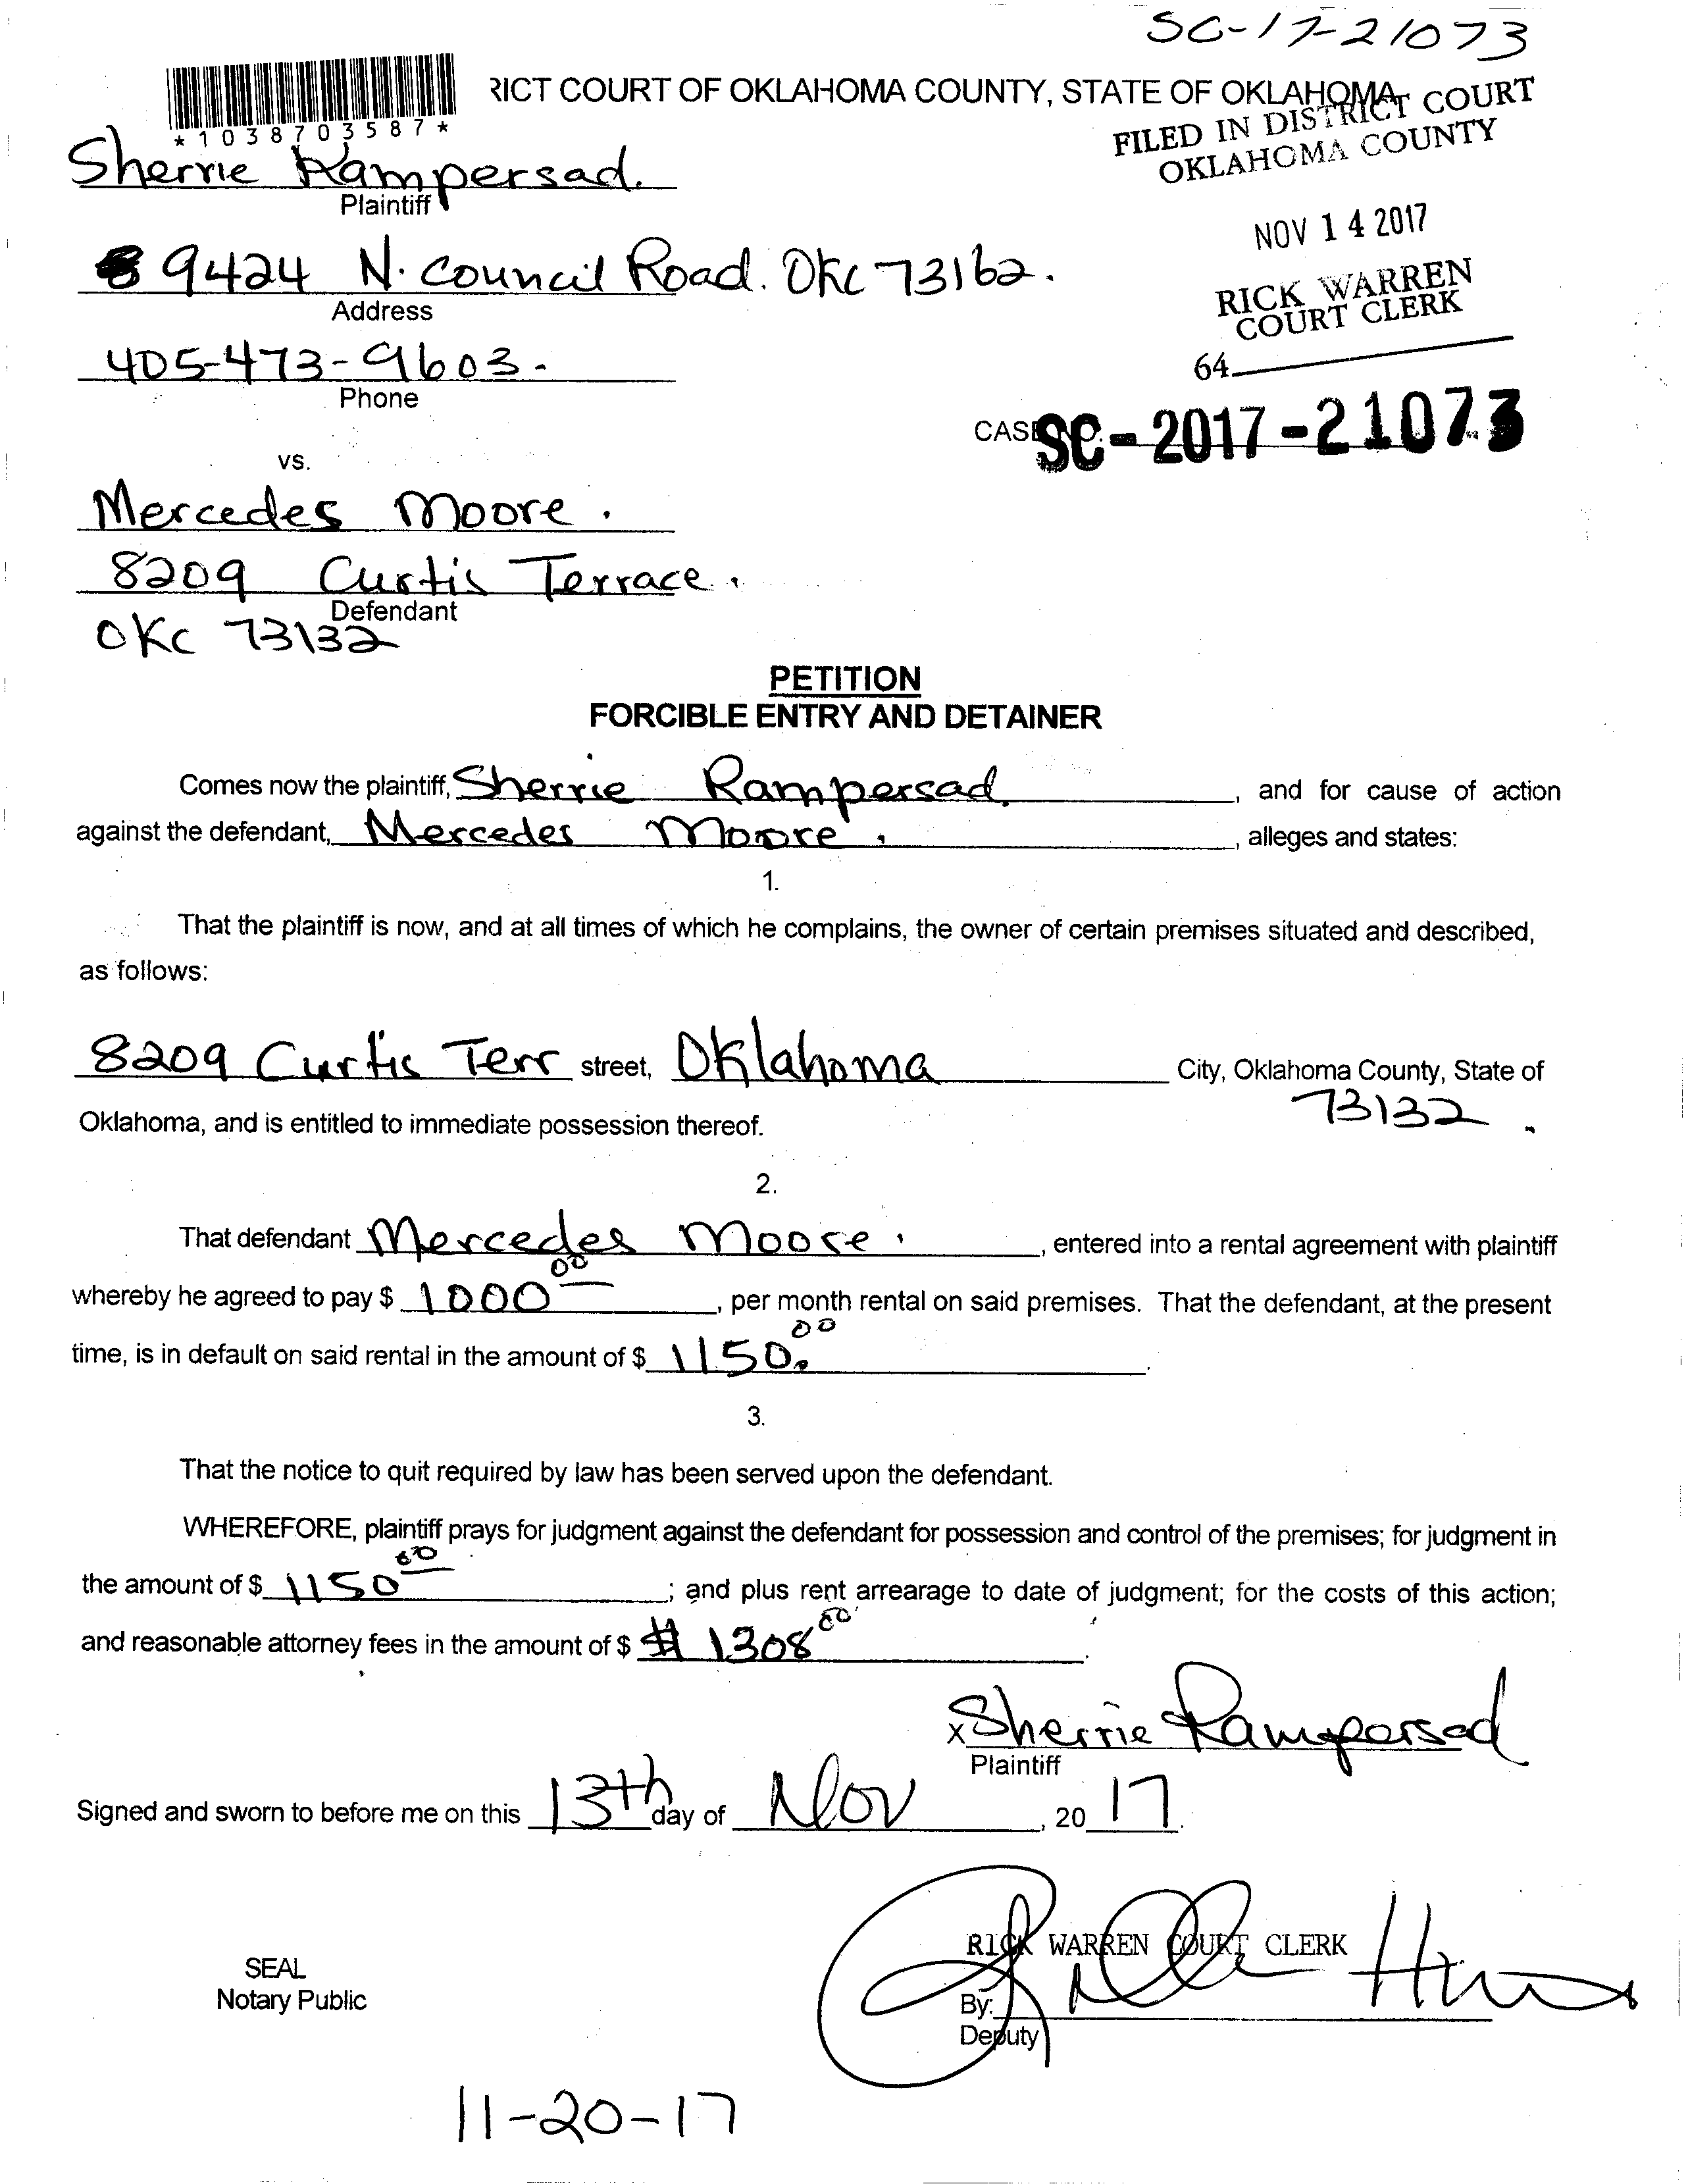 SC-17-21073
RICT COURT OF OKLAHOMA COUNTY, STATE OF OKLAHOMA
FILED IN DISTRICT COURT
OKLAHOMA COUNTY
*1038703587*
Sherrie Rampersad.
Plaintiff
NOV 14 2017
9424 N. Council Road. OKC 73162.
Address
RICK WARREN
COURT CLERK
64
405-473-9603.
Phone
CASE NO. SC-2017-21073
vs.
Mercedes Moore.
8209 Curtis Terrace.
Defendant
OKC 73132
PETITION
FORCIBLE ENTRY AND DETAINER
Comes now the plaintiff, Sherrie Rampersad, and for cause of action
against the defendant, Mercedes Moore., alleges and states:
1.
That the plaintiff is now, and at all times of which he complains, the owner of certain premises situated and described,
as follows:
8209 Curtis Terr street, Oklahoma City, Oklahoma County, State of
Oklahoma, and is entitled to immediate possession thereof. 73132.
2.
That defendant Mercedes Moore., entered into a rental agreement with plaintiff
whereby he agreed to pay $ 1000 00, per month rental on said premises. That the defendant, at the present
time, is in default on said rental in the amount of $ 1150.00.
3.
That the notice to quit required by law has been served upon the defendant.
WHEREFORE, plaintiff prays for judgment against the defendant for possession and control of the premises; for judgment in
the amount of $ 1150 00; and plus rent arrearage to date of judgment; for the costs of this action;
and reasonable attorney fees in the amount of $ $ 1308 00.
x Sherrie Rampersad
Plaintiff
Signed and sworn to before me on this 13th day of Nov, 20 17.
RICK WARREN COURT CLERK
SEAL
Notary Public
By:
Deputy
11-20-17